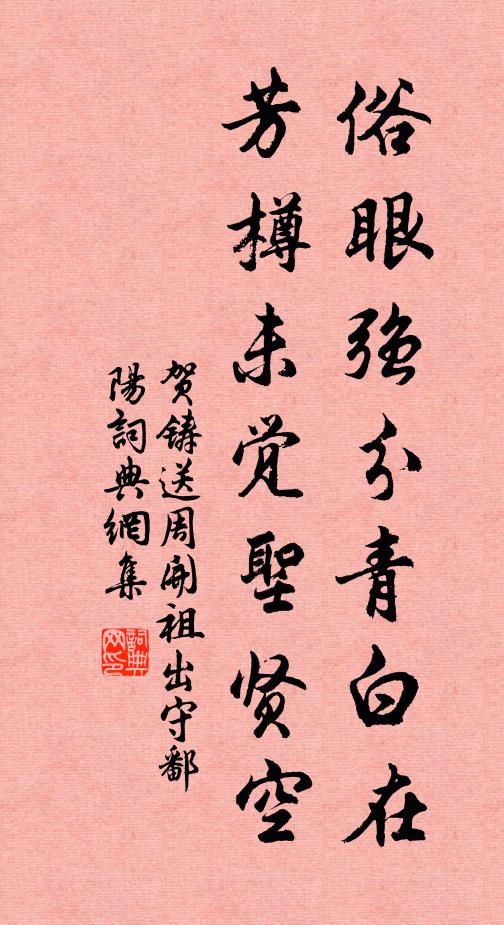 俗眼強分青白在
芳樽未覚聖贤空
贺鋳送周開祖出守鄱
陽詞典網集
詞典网印